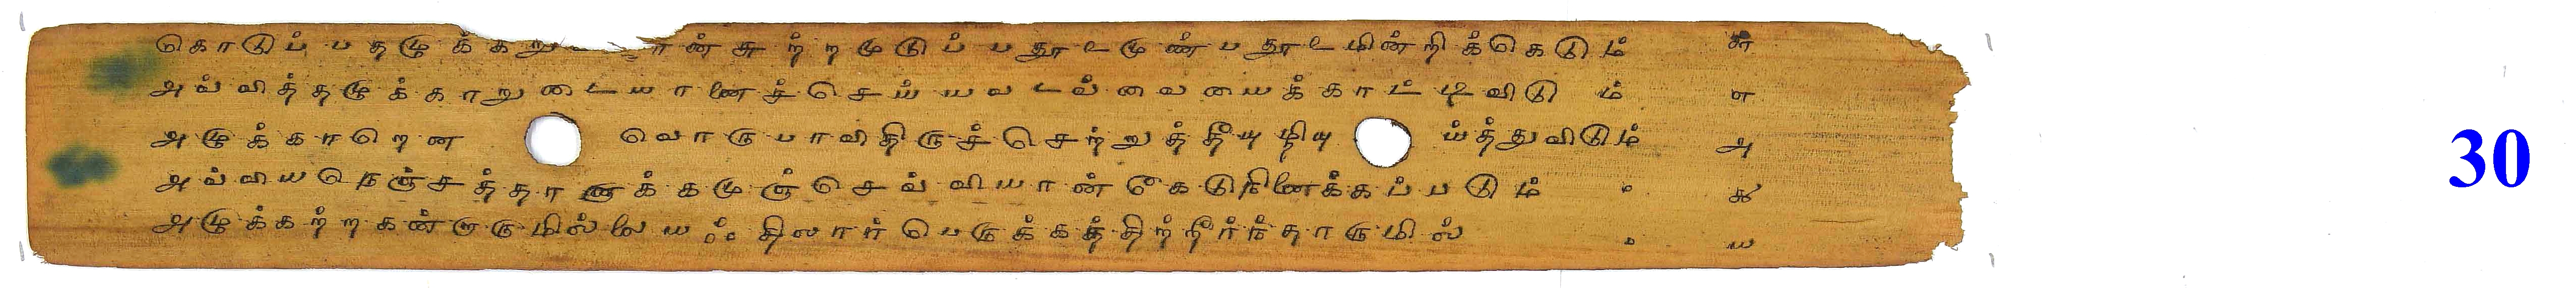 கொடுப்பதழுக்கறு ான்சுற்றமுடுப்பதூஉமுண்பதூஉமின்றிக்கெடும் சு
அவ்வித்தழுக்காறுடையானைச்செய்யவடவ்வையைக்காட்டிவிடும் ள
அழுக்காறென வொருபாவிதிருச்செற்றுத்தீயுழியுய்த்துவிடும் அ
அவ்வியநெஞ்சத்தானாக்கமுஞ்செவ்வியான்கேடுநினைக்கப்படும் ௯
அழுக்கற்றகன்றாருமில்லையஃதிலார்பெருக்கத்திற்றீர்ந்தாருமில் ய
30